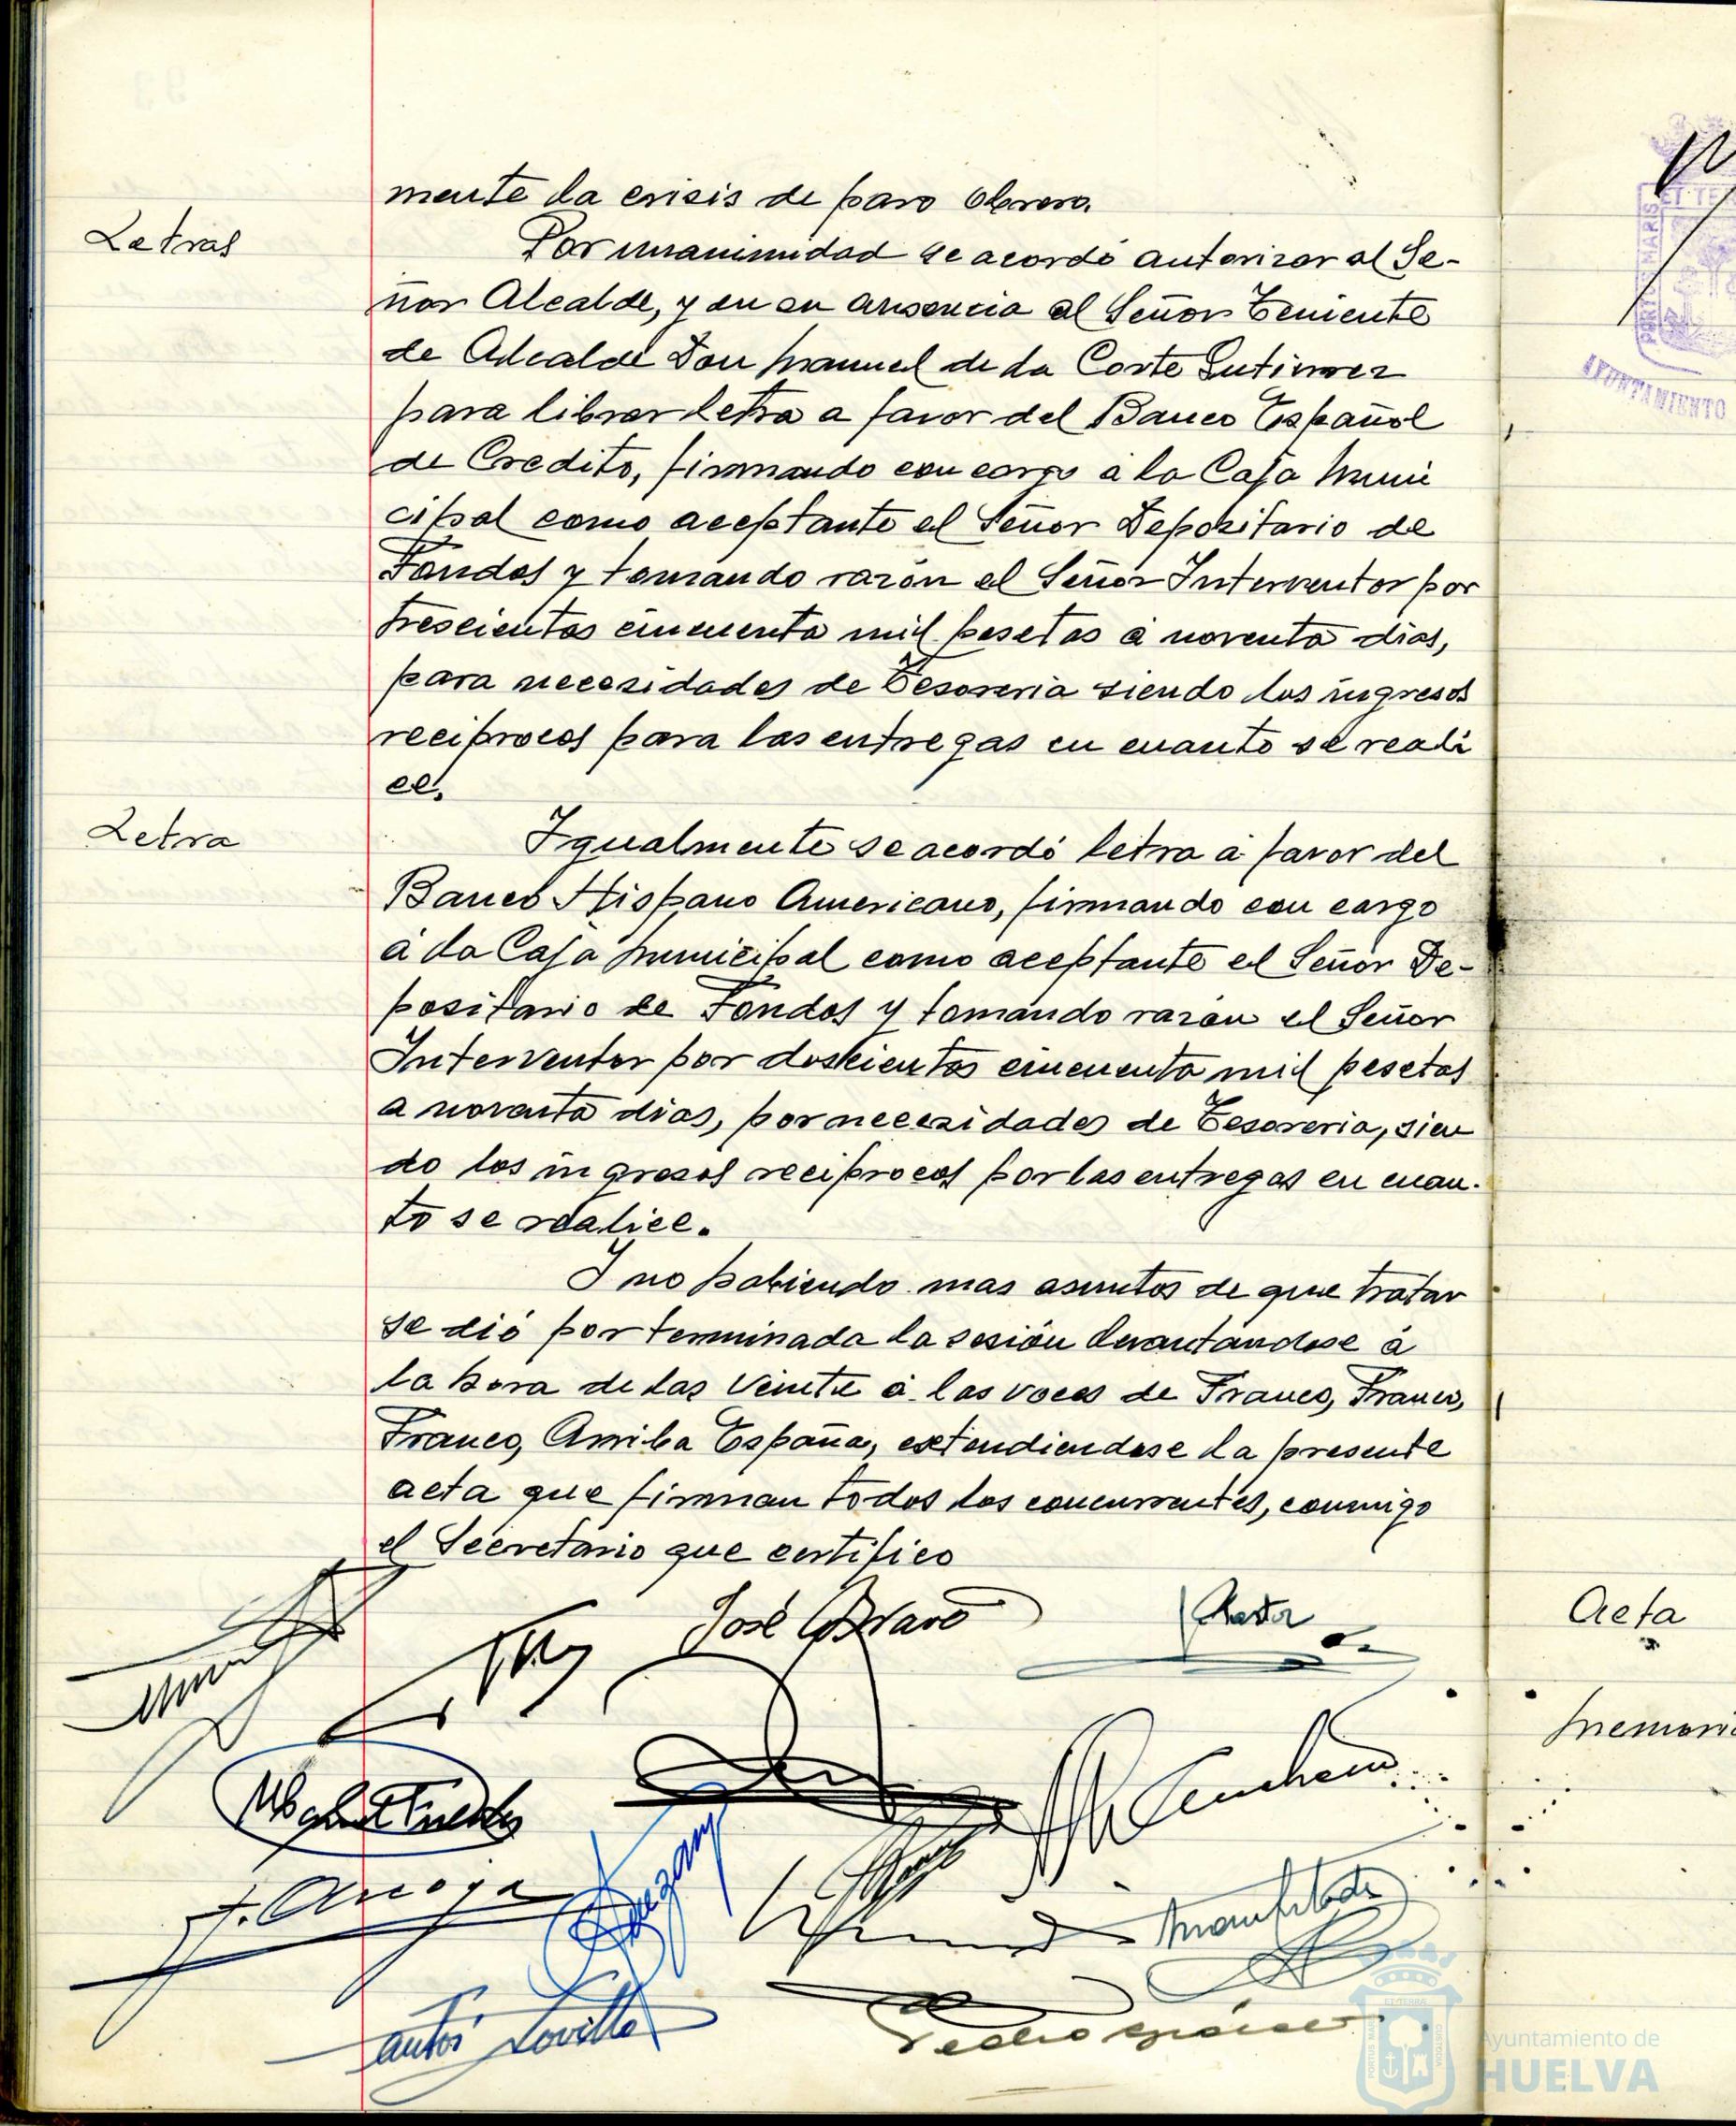 mente la crisis de paro obrero.
Letras
Por unanimidad se acordó autorizar al Se-
ñor Alcalde, y en su ausencia al Señor Teniente
de Alcalde Don Manuel de la Corte Gutierrez
para librar letra a favor del Banco Español
de Credito, firmando con cargo a la Caja Muni
cipal como aceptante el Señor Depositario de
Fondos y tomando razón el Señor Interventor por
trescientas cincuenta mil pesetas a noventa dias,
para necesidades de Tesoreria siendo los ingresos
reciprocos para las entregas en cuanto se reali
ce.
Letra
Igualmente se acordó letra a favor del
Banco Hispano Americano, firmando con cargo
a la Caja Municipal como aceptante el Señor De-
positario de Fondos y tomando razon el Señor
Interventor por doscientas cincuenta mil pesetas
a noventa dias, por necesidades de Tesoreria, sien
do los ingresos reciprocos por las entregas en cuan-
to se realice.
Y no habiendo mas asuntos de que tratar
se dió por terminada la sesión levantandose a
la hora de las veinte a las voces de Franco, Franco,
Franco, Arriba España, extendiendose la presente
acta que firman todos los concurrentes, conmigo
el Secretario que certifico
José
J. Arroyo
Pedro
Acta
PORTUS MARIS
ET TE
AYUNTAMIENTO
Ayuntamiento de
HUELVA